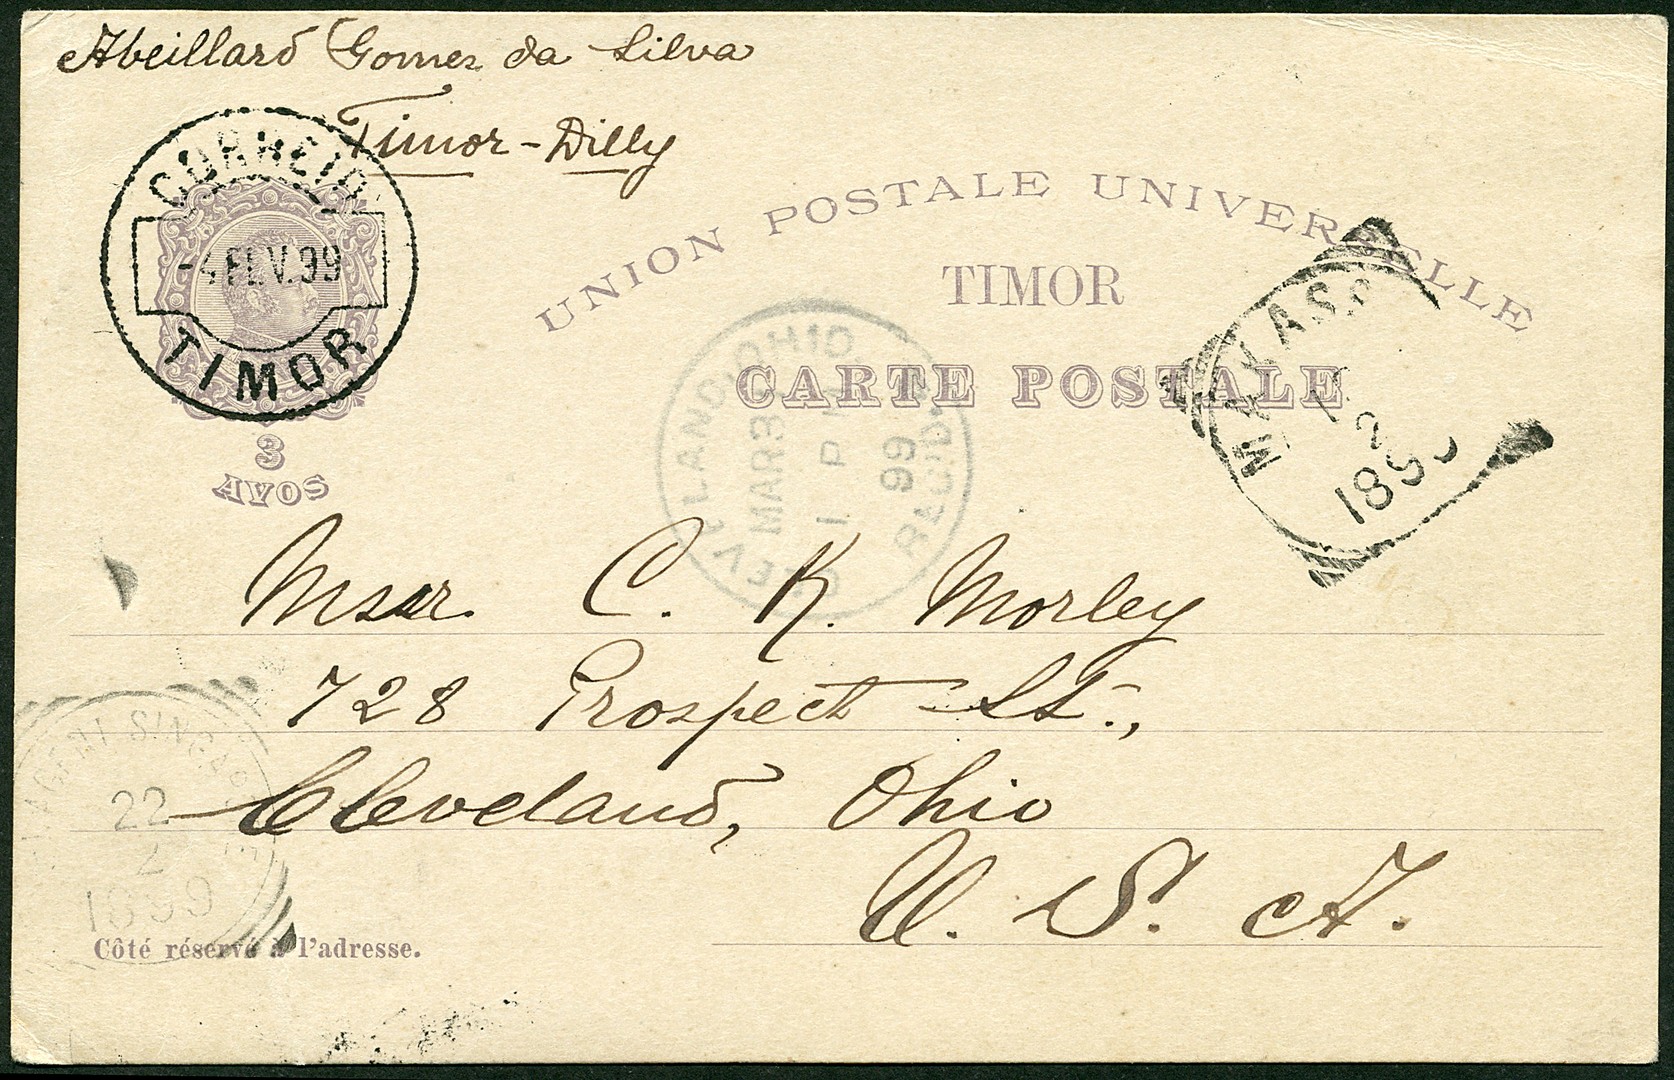 Abeillard Gomes da Silva
Timor - Dilly
CORREIO
FEV. 99
TIMOR
3
AVOS
UNION POSTALE UNIVERSELLE
TIMOR
CARTE POSTALE
CLEVELAND, OHIO.
MAR 3
1 P
99
REC'D.
MAKASS
2
1899
C. K. Morley
728 Prospect St.,
Cleveland, Ohio
U. S. A.
AGENT SINGAPORE
22
2
1899
Côté réservé à l'adresse.